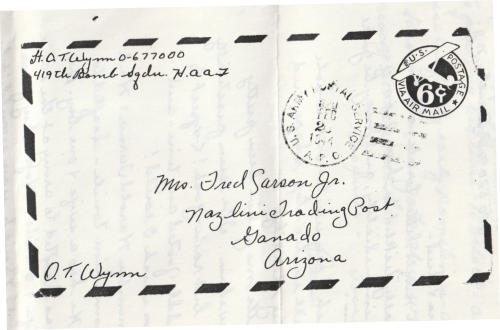 H.O.T. Wynn O-677000
419th Bomb Sqdn. H.A.A.F
U.S. POSTAGE
VIA AIR MAIL
6¢
U.S. ARMY POSTAL SERVICE
1944
A.P.O.
Mrs. Fred Carson Jr.
Nazlini Trading Post
Ganado
Arizona
O.T. Wynn